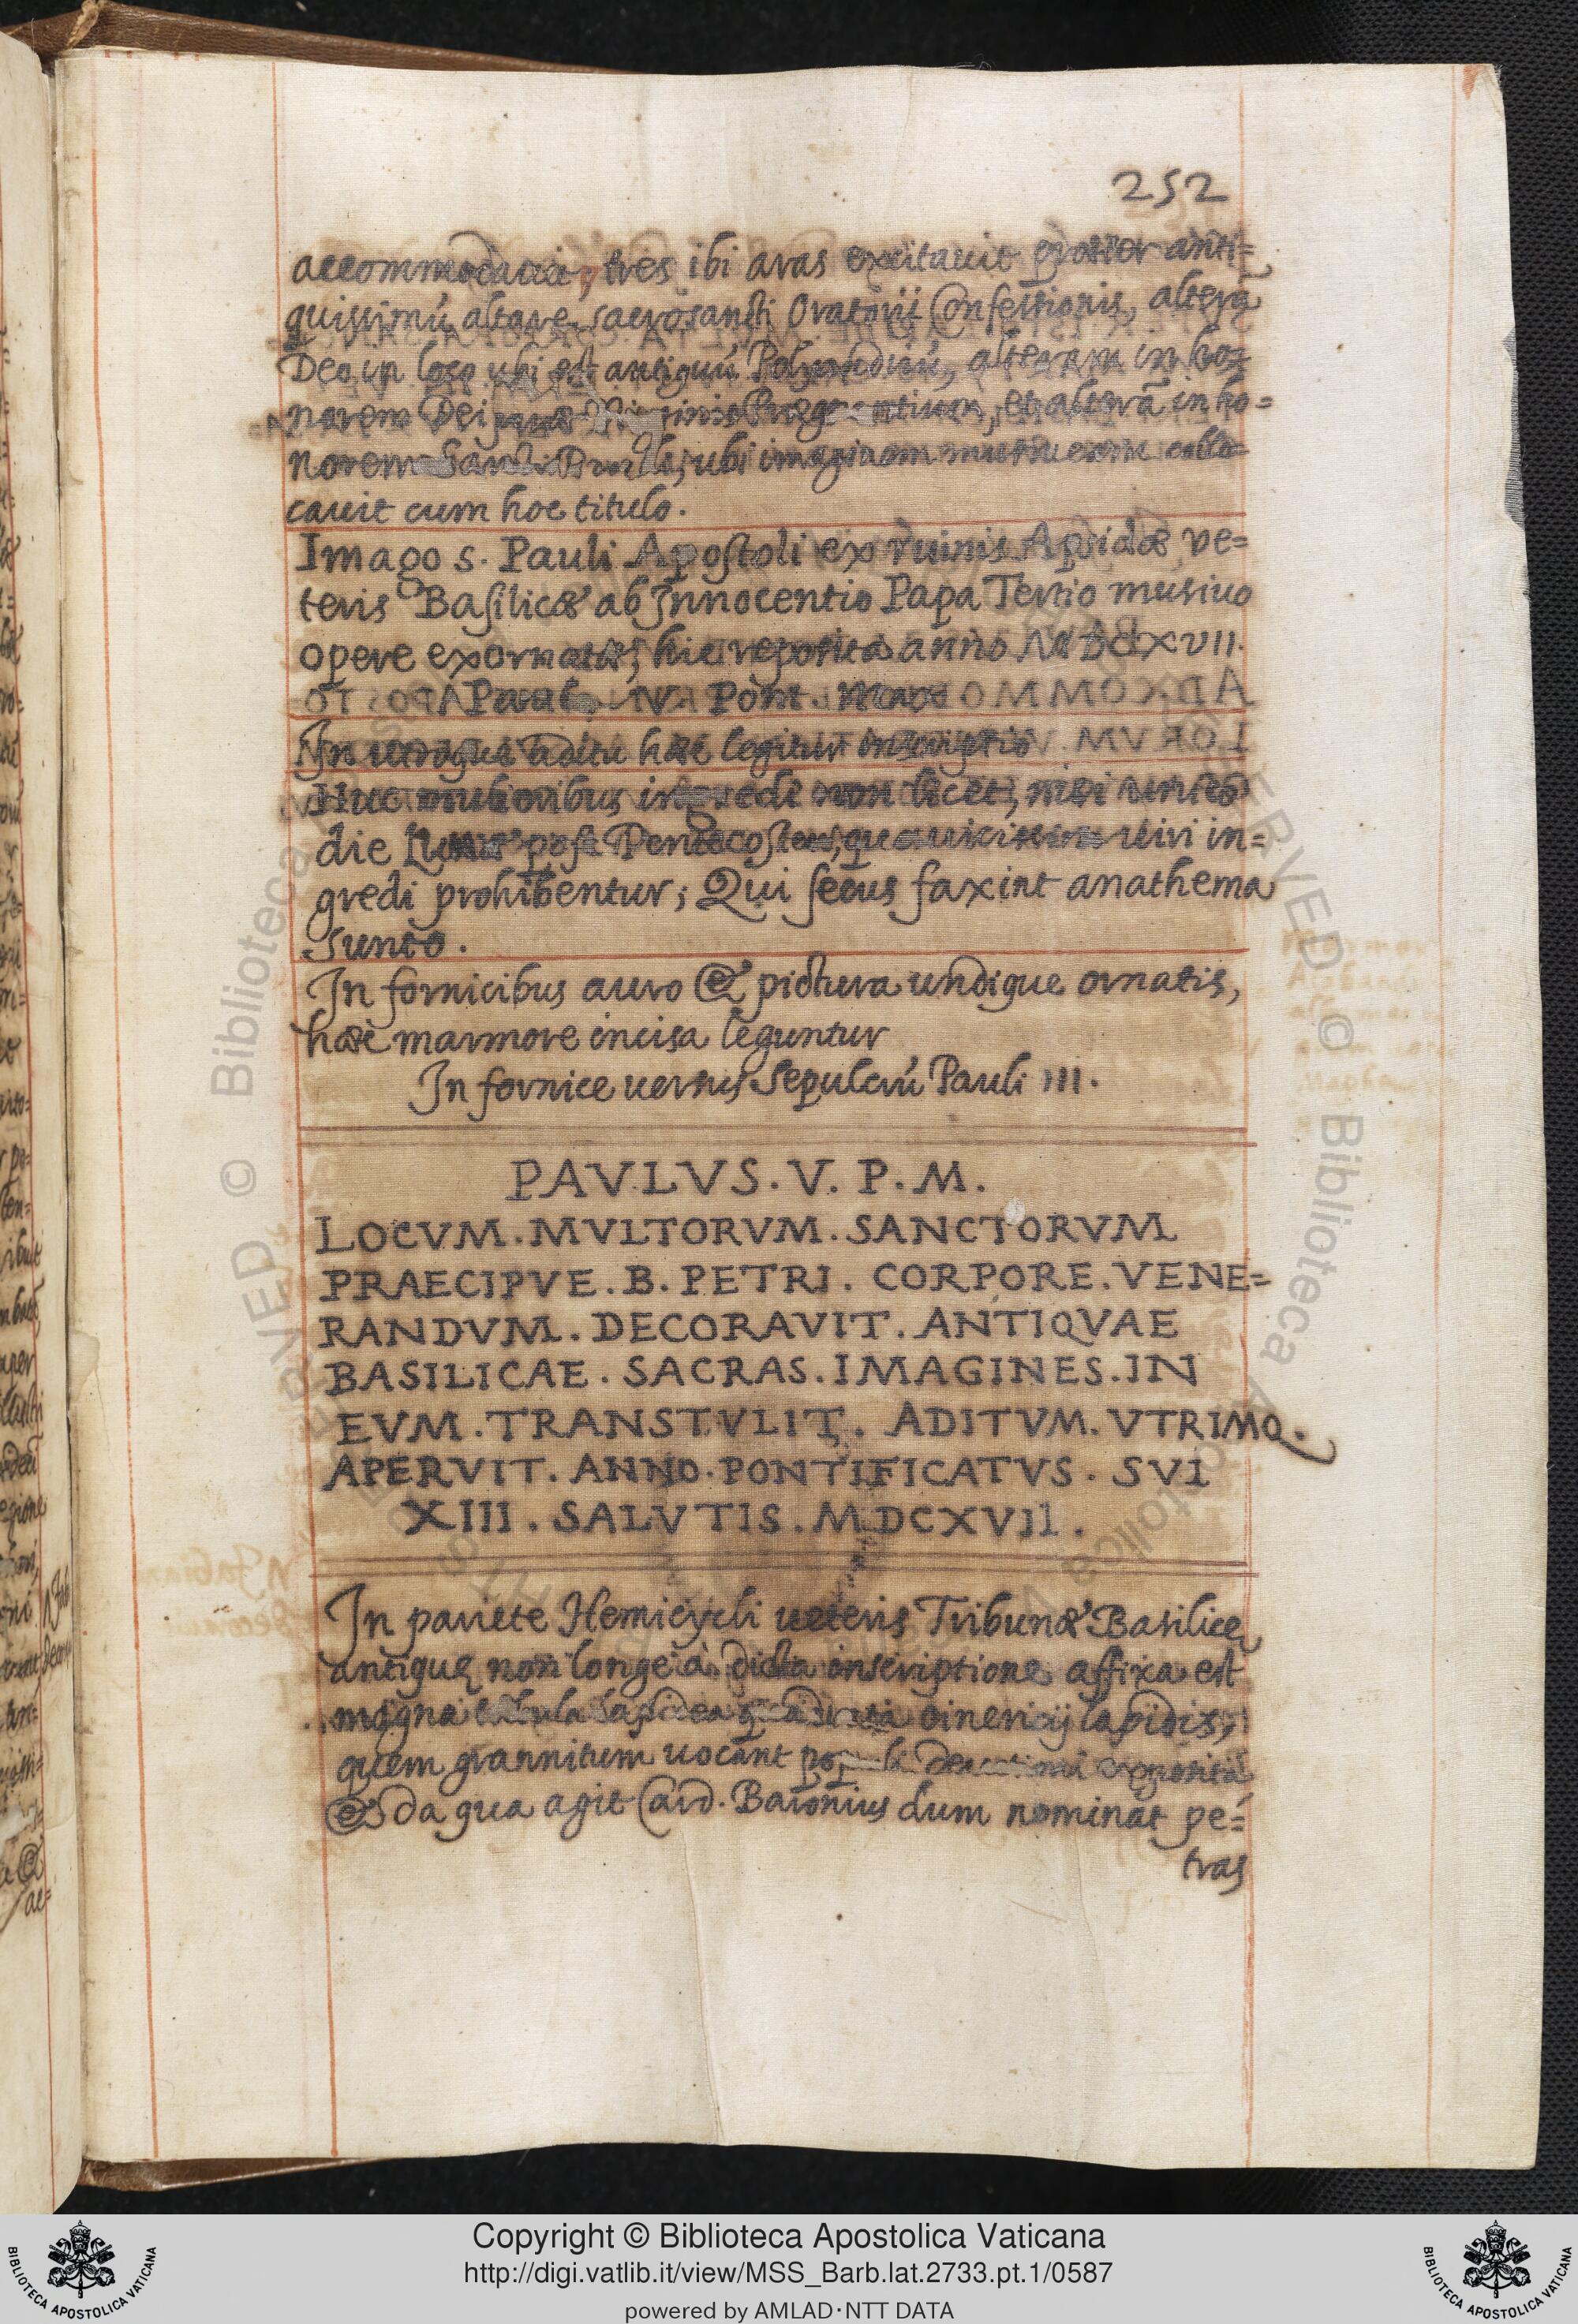 252
accommodata, tres ibi aras excitauit praeter anti=
quissimũ altare sacrosancti Oratorii Confessionis, alterã
Deo in loco ubi est antiquũ Polyandriũ, alteram in ho=
norem Dei et alterã in ho=
norem Sancti Pauli, ubi imaginem collo=
cauit cum hoc titulo.
Imago s. Pauli Apostoli ex ruinis Apsidæ ve=
teris Basilicæ ab Innocentio Papa Tertio musiuo
opere exornatæ, hic reposita anno MDCXVII.
Pont. Max
In utroque aditu hæc legitur inscriptio
Huc mulieribus ingredi non licet, nisi unico
die Lunæ post Pentecosten, quo uicissim uiri in=
gredi prohibentur; Qui secus faxint anathema
sunto.
In fornicibus auro & pictura undique ornatis,
hæc marmore incisa leguntur
In fornice uersus Sepulcrũ Pauli III.
PAVLVS. V. P. M.
LOCVM. MVLTORVM. SANCTORVM
PRAECIPVE. B. PETRI. CORPORE. VENE=
RANDVM. DECORAVIT. ANTIQVAE
BASILICAE. SACRAS. IMAGINES. IN
EVM. TRANSTVLIT. ADITVM. VTRIMQ.
APERVIT. ANNO. PONTIFICATVS. SVI
XIII. SALVTIS. MDCXVII.
In pariete Hemicycli ueteris Tribunæ Basilice
antique non longe à dicta inscriptione affixa est
magna tabula lapidea quadrata cinericij lapidis,
quem grannitum uocant exposita
& da qua agit Card. Baronius dum nominat pe=
tras
Copyright © Biblioteca Apostolica Vaticana
http://digi.vatlib.it/view/MSS_Barb.lat.2733.pt.1/0587
powered by AMLAD·NTT DATA
BIBLIOTECA APOSTOLICA VATICANA
BIBLIOTECA APOSTOLICA VATICANA